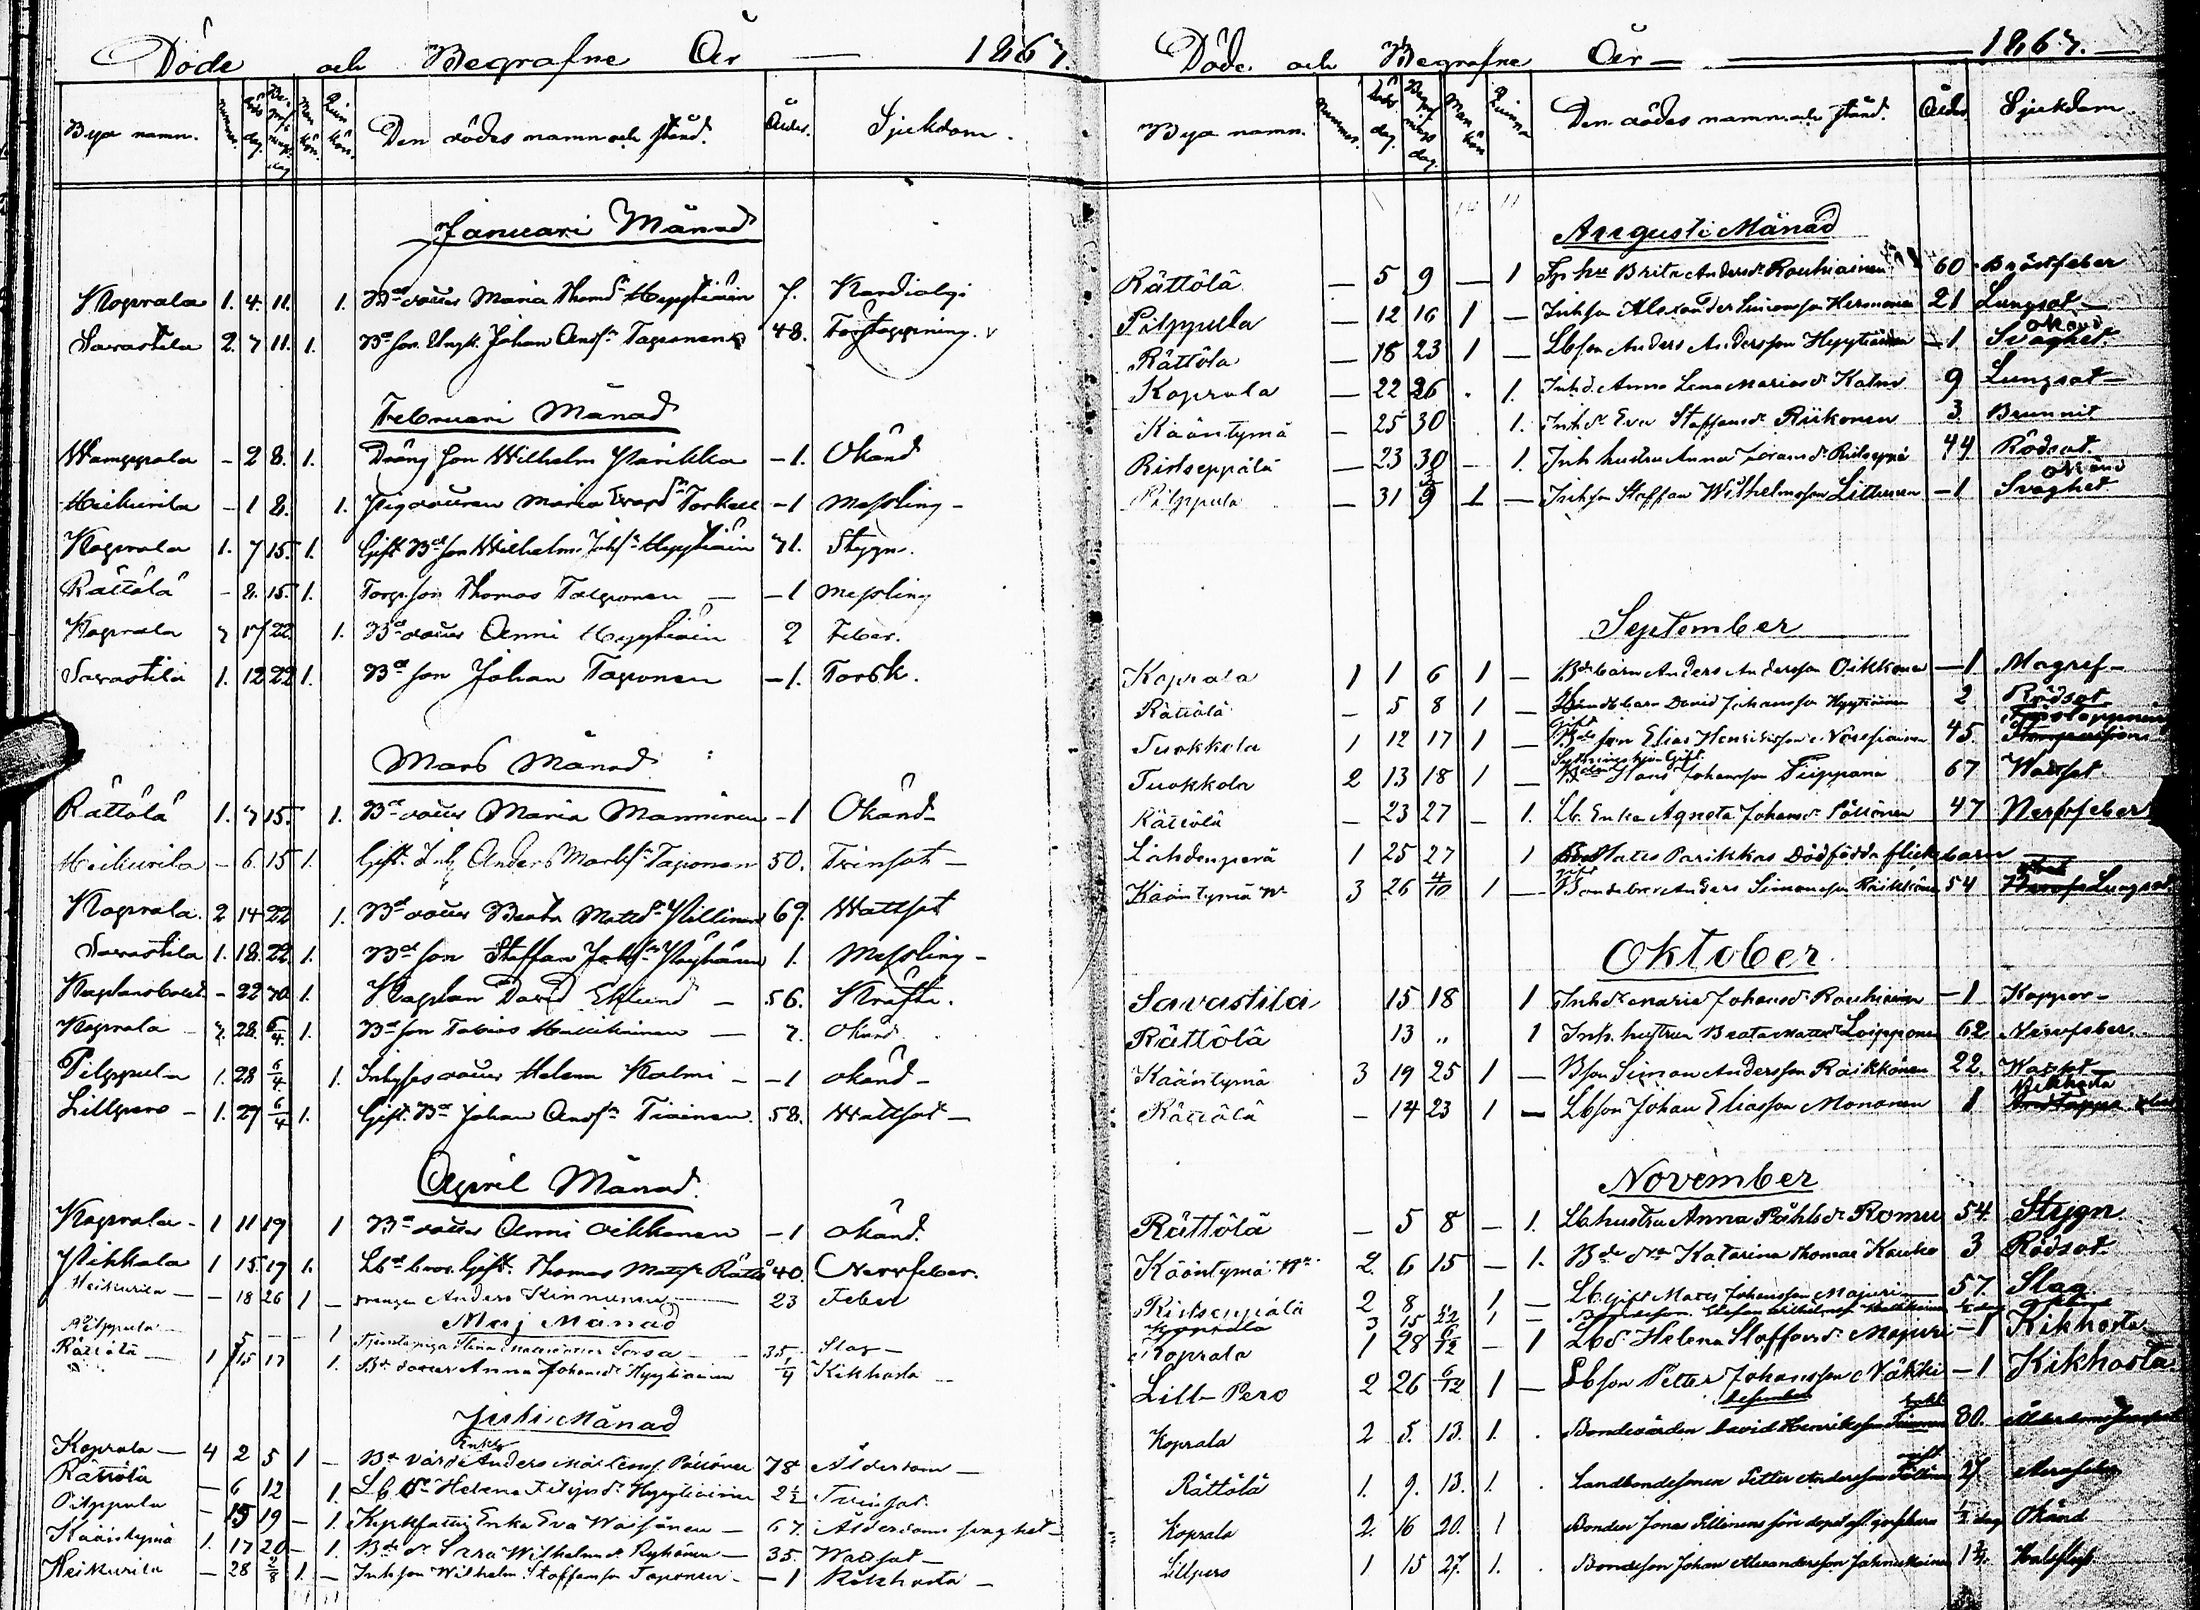 Döde och Begrafne År 1867.
Bya namn. Nummer. Döds dag. Begrafnings dag Man kön. Qvin kön. Den dödes namn och stånd. Ålder. Sjukdom.
Januari Månad
Koprala 1. 4. 11. 1. Bd dotter Maria Thomd Hyytiäin 7. Kardialgi
Savastila 2. 7 11. 1. Bd son Johan Andsn Taponen 48. Förstoppning.
Februari Månad
Wamppala - 2 8. 1. Dräng son Wilhelm Parikka -1. Okänd
Heikurila - 1 8. 1. Pigdottren Maria Torkell -1 Messling -
Koprala 1. 7 15. 1. Gift Bd son Wilhelm Johsn Hyytiäin 71. Stygn.
Rättölä - 8. 15. 1. Torp. son Thomas Taponen - -1 Messling
Koprala 2 17 22 1. Bd dotter Anni Hyytiäin 2 Feber.
Savastila 1. 12 22 1. Bd son Johan Taponen -1. Torsk.
Mars Månad
Rättölä 1. 7 15. 1. Bd dotter Maria Manninen -1 Okänd
Heikurila - 6. 15 1. Gift. Inh Anders Marksn Taponen 50. Tvinsot -
Koprala. 2 14 22 1. Bd dotter Beata Mattsdr Pillinen 69. Wattsot
Savastila 1. 18. 22 1. Bd son Staffan Johsn Pöyhönen 1. Messling -
Kaplansbolet - 22 30 1. Kaplan David Eklund - 56. Kräfta.
Koprala 2. 28. 6/4. 1. Bd son Tobias - 7. Okänd
Pilppula 1. 28 6/4. 1. Inhyses dotter Helena Kolmi - -1 okänd -
Lillpero - 1. 27 6/4 1. Gift. Bd Johan Andsn Tiainen. 58. Wattsot -
April Månad.
Koprala - 1 11 19 1 Bd dotter Anni Oikkonen -1 okänd.
Pikkala 1 15 19 1. Gift. Thomas Mattsn Rättö 40. Nervfeber.
Heikurila - - 18 26 1 - drengen Anders Kinnunen - 23 Feber
Maj Månad
Pilppula - 5 - - 1 Tjensta piga Stina 35. Slag -
Rättölä - 1 15 17 1. Bd dotter Anna Johansdr Hyytiäinen 1/4 Kikhosta
Juli Månad
Enkl.
Koprala - 4 2 5 1 - Bd värd Anders Pöllönen 78 Ålderdom -
Rättölä - 6 12 1. Lb dr Helena Filipsdr Hyytiäinen 2½ Tvinsot.
Pilppula - 15 19 - 1. Enka Eva - 67. Ålderdoms svaghet -
Kääntymä 1. 17 20 - 1. Bd dr Sara Wilhelmsdr Ryhänen - 35. Wattsot -
Heikurila - 28 2/8 1. - Inh son Wilhelm Staffansson Taponen - -1 Kikhosta -
Döde och Begrafne År - 1867.
Bya namn. Nummer. Döds dag. Begrafnings dag. Man kön Qvinna Den dödes namn och stånd. Ålder Sjukdom
Augusti Månad
Rättölä - 5 9 - 1 Brita Andersdr Rouhiainen 60 Bröstfeber
Pilppula - 12 16 1 - Inh son Alexander Simonsson Hermonen 21 Lungsot -
Rättölä - 18 23 1 - Lb son Anders Andersson Hyytiäinen -1 okänd Svaghet.
Koprala - 22 26 . 1. Inh d. Anna Lena Mariasdr Kolmi 9 Lungsot -
Kääntymä - 25 30 1. Inh dr Eva Staffansdr Riikonen 3 Brunnit
Ristseppälä - 23 30 - 1. Inh hustru Anna 44 Rödsot.
Pilppula - 31 3/9 1 - Inh son Staffan Wilhelmsson Littunen -1 okänd Svaghet
September
Koprala 1 1 6 1 - Bde barn Anders Andersson Oikkonen -1 Magref -
Rättölä - 5 8 1 - David Johansson Hyytiäinen 2 Rödsot
Tuokkola 1 12 17 1 - Gift Bde son Elias Henriksson 45. Förstoppning
Tuokkola 2 13 18 1 - Hans Johansson Piipponen 67 Wattsot.
Rättölä - 23 27 - 1. Lb. Enka Agneta Johansdr Pöllönen 47 Nervfeber
Lahdenperä 1 25 27 1 Mats Parikkas Dödfödda flickebarn
Kääntymä 3 26 4/10 1 - Anders Simonsson Räikkönen 54 Lungsot
Oktober
Savastila 15 18 1 Inh dr Maria Johansdr Rouhiainen -1 Koppor -
Rättölä 13 " 1 Inh. hustrun Beata Mattsdr Loipponen 62 Nervfeber.
Kääntymä 3 19 25 1 - B son Simon Andersson Räikkönen 22. Wattst -
Rättölä - 14 23 1 - Lb son Johan Eliasson Mononen 1 Kikhosta
November
Rättölä - 5 8 - 1. Lb hustru Anna Påhlsdr Romu 54. Stygn.
Kääntymä 2. 6 15 - 1. Bde dr Katarina Thomas Kauko 3 Rödsot.
Ristseppälä 2 8 1 - Lb. Gift Mats Johansson Majuri 57. Slag
Koprala 3 15 22 1 - Stefan Wilhelmsson
Koprala 1 28 6/12 - 1 Lb dr Helena Staffansdr Majuri -1 Kikhosta
Lill-Pero 2 26 6/12 1 - Lb son Petter Johansson Näkki -1 Kikhosta.
December
Koprala 2 5. 13. 1. . Bondevärden David Henriksson Enkl. 80.
Rättölä 1. 9. 13. 1. . Landbondesonen Petter Andersson gift 27 Nervfeber
Koprala 2. 16 20. 1 Bonden Jonas Pillinens 1/2 dag Okänd
Lillpero 1 15 27. 1. . Bondeson Johan Alexandersson Halsfluss